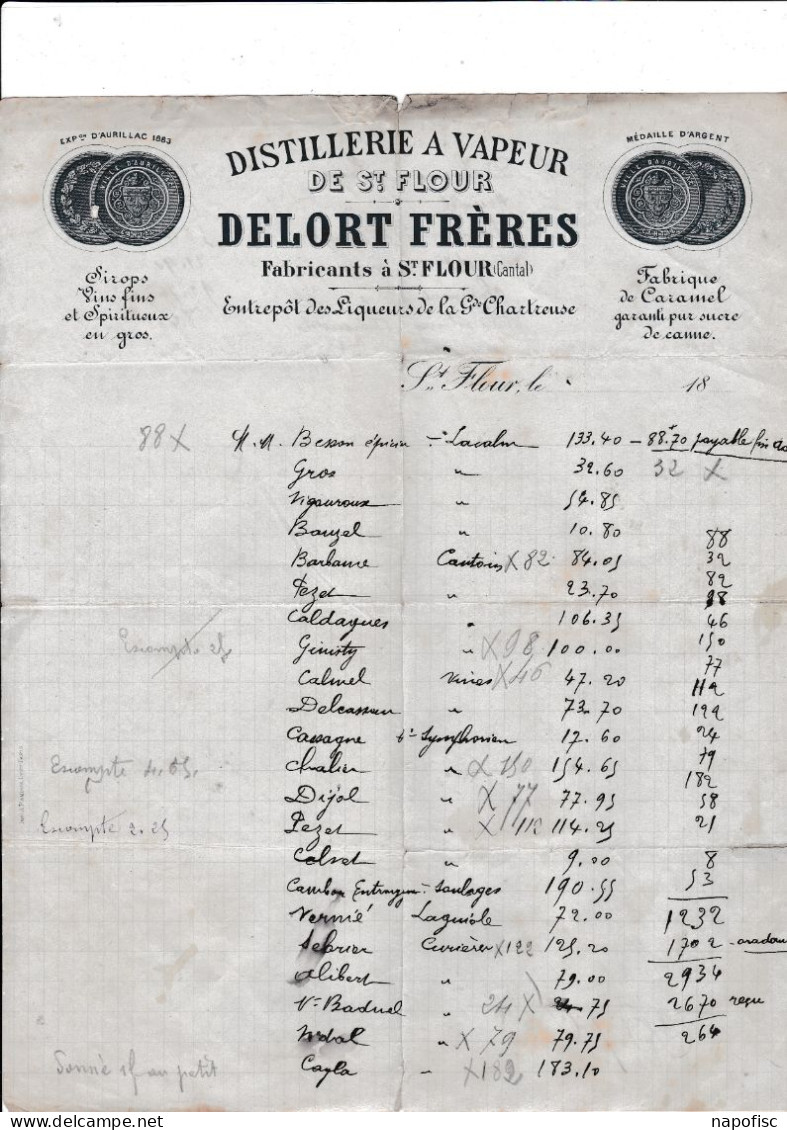 EXPᵒⁿ D'AURILLAC 1883
MÉDAILLE D'ARGENT
DISTILLERIE A VAPEUR
DE Sᵀ FLOUR
DELORT FRÈRES
Fabricants à Sᵀ FLOUR (Cantal)
Entrepôt des Liqueurs de la Gᵈᵉ Chartreuse
Sirops
Vins fins
et Spiritueux
en gros.
Fabrique
de Caramel
garanti pur sucre
de canne.
Sᵗ Flour, le 18
88 X M.M. Besson épicier - Lacalm 133.40 - 88.70 payable fin
Gros " 32.60 32 X
Vigouroux " 54.85
Bouzel " 10.80 88
Barbance Cantoin X 82. 84.05 32
Pezet " 23.70 82
Caldagues " 106.35 98 46
Escompte 2f Ginisty " X 98 100.00 150
Calmel Vines X 46 47.20 77
Delcassan " 73.70 112
Cassagne St Symphorien 17.60 122 24
Escompte 4.65. Chalier " X 150 154.65 79
182
Dijol " X 77 77.95 58
Escompte 2.25 Pezet " X 112 114.25 21
Calvet " 9.00 8
Cambon - Soulages 190.55 53
Vernié Laguiole 72.00 1232
Curières X 122 125.20 1702
Alibert " 79.00 2934
Vᵉ Baduel " 24 X 24.75 2670 reçu
Nodal " X 79 79.75 264
Donné 1f au petit Cayla " X 182 183.10
www.delcampe.net
napofisc